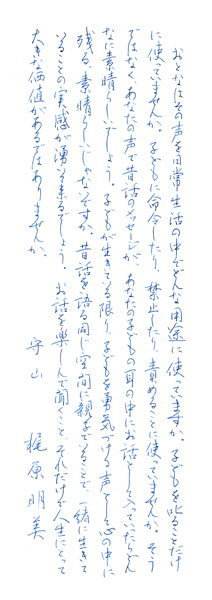 おとなはその声を日常生活の中でどんな用途に使っていますか。子どもを叱ることだけ
に使っていませんか。子どもに命令したり、禁止したり、責めることに使っていませんか。そう
ではなく、あなたの声で昔話のメッセージが、あなたの子どもの耳の中にお話として入っていったらどん
なに素晴らしいでしょう。子どもが生きている限り、子どもを勇気づける声として心の中に
残る。素晴らしいじゃないですか。昔話を語る同じ空間に親子でいることで、一緒に生きて
いることの実感が湧いて来るでしょう。お話を楽しんで聞くこと、それだけで人生にとって
大きな価値があるではありませんか。
守山 梶原明美